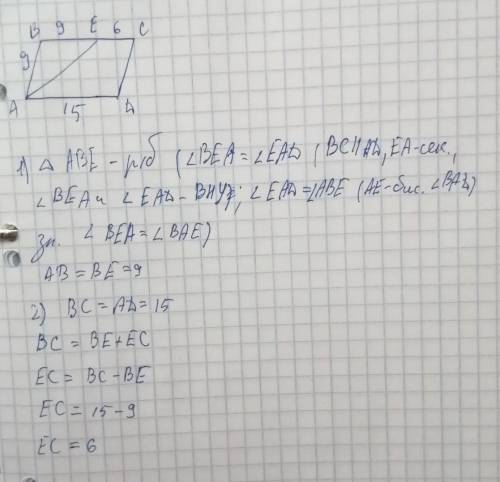 B 9 E 6 C
9
A 15 D
1) △ ABE - р/б (∠BEA = ∠EAD (BC || AD, EA - сек.,
∠BEA и ∠EAD - ВНУТ; ∠EAD = ∠ABE (AE - бис. ∠BAD)
зн. ∠BEA = ∠BAE)
AB = BE = 9
2) BC = AD = 15
BC = BE + EC
EC = BC - BE
EC = 15 - 9
EC = 6